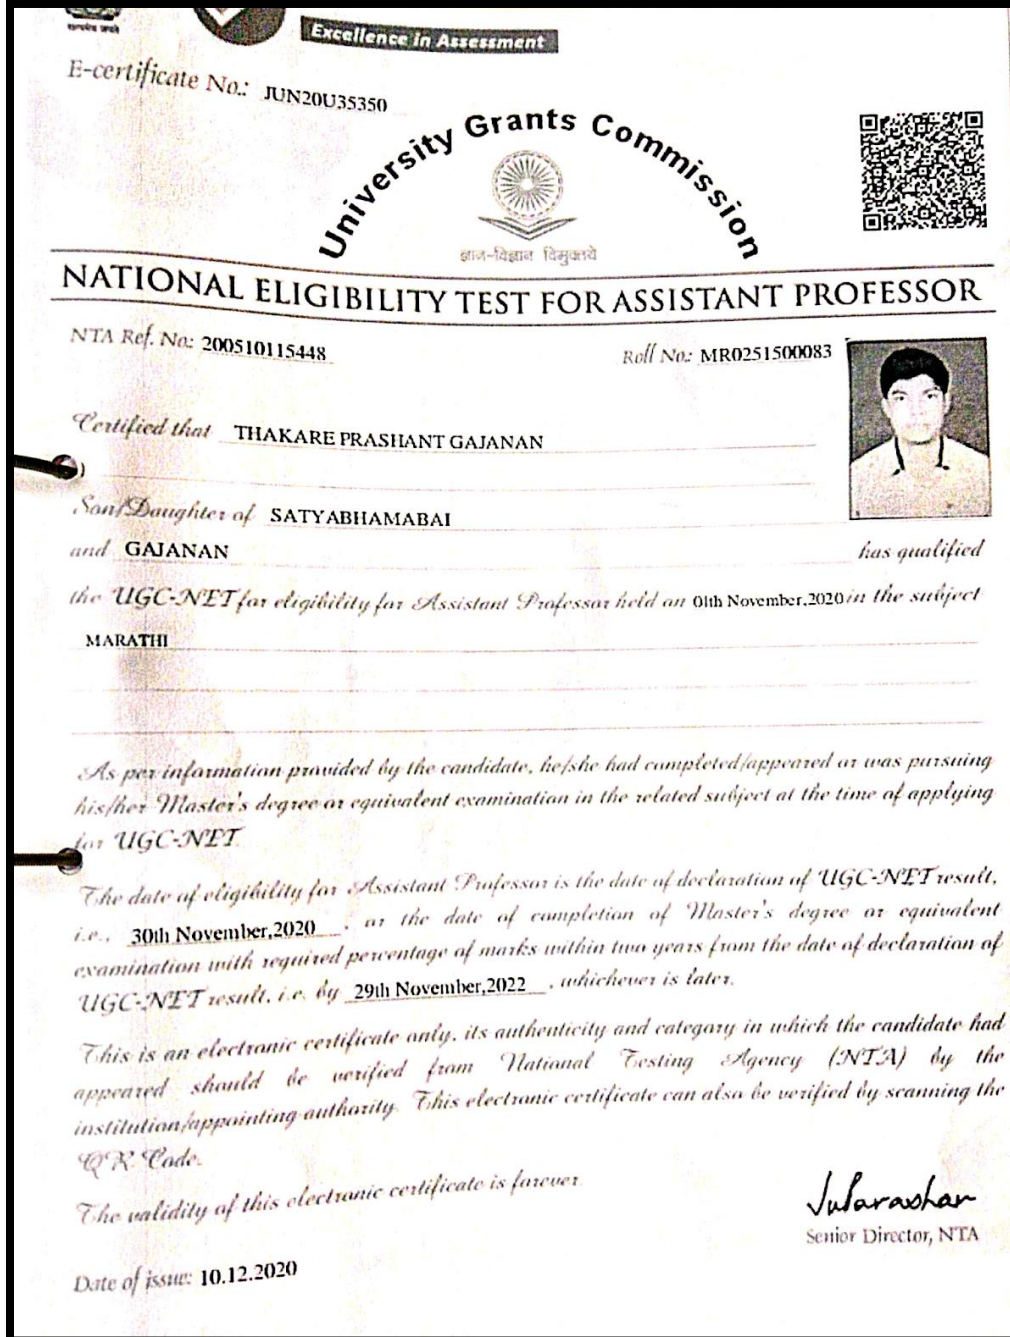 Excellence in Assessment
E-certificate No.: JUN20U35350
University Grants Commission
ज्ञान-विज्ञान विमुक्तये
NATIONAL ELIGIBILITY TEST FOR ASSISTANT PROFESSOR
NTA Ref. No.: 200510115448 Roll No.: MR0251500083
Certified that THAKARE PRASHANT GAJANAN
Son/Daughter of SATYABHAMABAI
and GAJANAN has qualified
the UGC-NET for eligibility for Assistant Professor held on 01th November,2020 in the subject
MARATHI
As per information provided by the candidate, he/she had completed/appeared or was pursuing
his/her Master's degree or equivalent examination in the related subject at the time of applying
for UGC-NET.
The date of eligibility for Assistant Professor is the date of declaration of UGC-NET result,
i.e., 30th November,2020, or the date of completion of Master's degree or equivalent
examination with required percentage of marks within two years from the date of declaration of
UGC-NET result, i.e. by 29th November,2022, whichever is later.
This is an electronic certificate only, its authenticity and category in which the candidate had
appeared should be verified from National Testing Agency (NTA) by the
institution/appointing authority. This electronic certificate can also be verified by scanning the
QR Code.
The validity of this electronic certificate is forever.
Senior Director, NTA
Date of issue: 10.12.2020